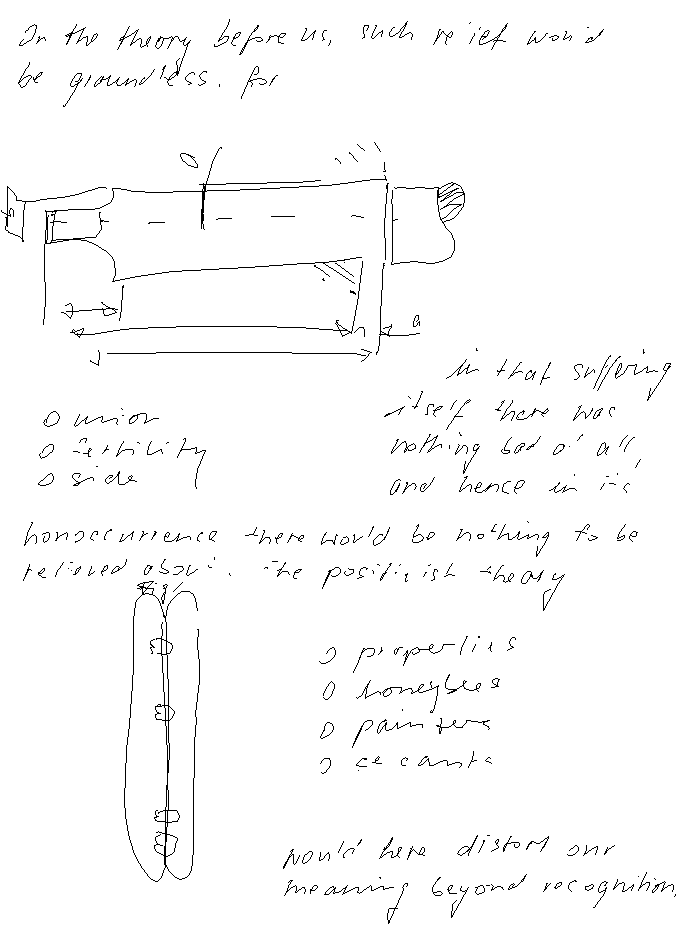 In the theory before us, such relief would
be groundless. for
a
in that suffering
itself there was
nothing bad at all,
and hence in its
O union
O fertility
O side
nonoccurrence there would be nothing to be
relieved about. The positivist theory
O properties
O honeybees
O painters
O secants
would here distort our
meaning beyond recognition.